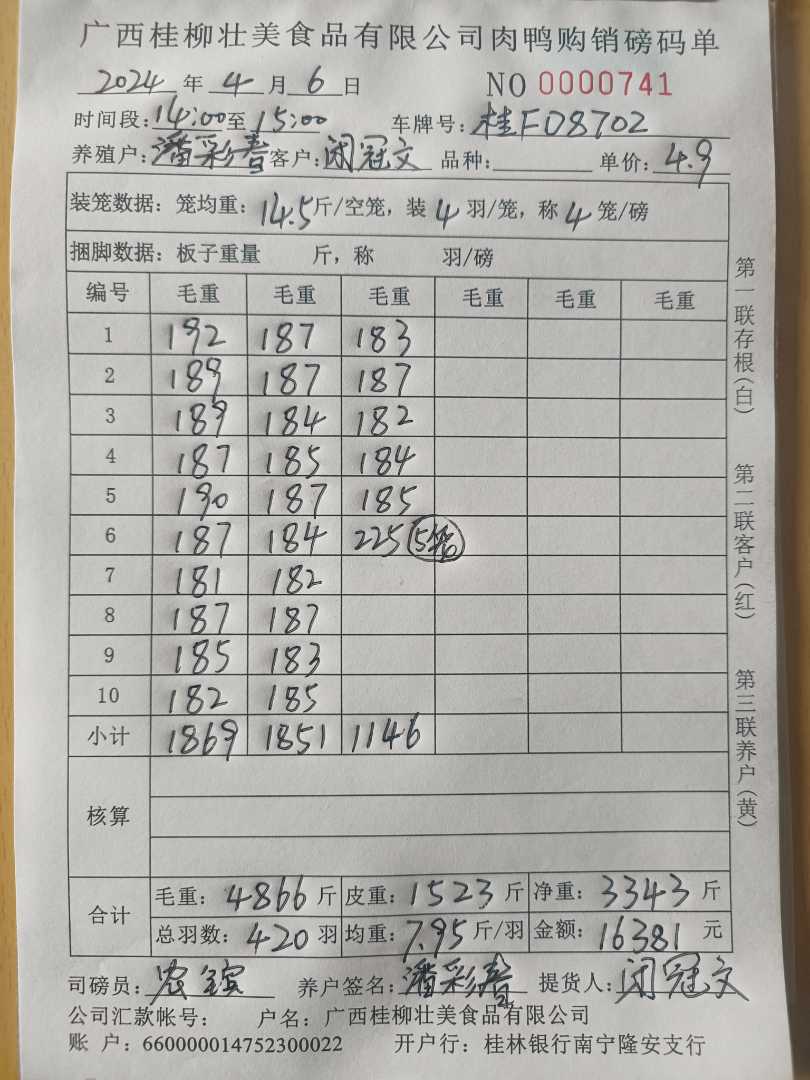 广西桂柳壮美食品有限公司肉鸭购销磅码单
2024 年 4 月 6 日 NO 0000741
时间段: 14:00 至 15:00 车牌号: 桂FD8702
养殖户: 潘彩春 客户: 闭冠文 品种: 单价: 4.9
装笼数据: 笼均重: 14.5 斤/空笼, 装 4 羽/笼, 称 4 笼/磅
捆脚数据: 板子重量 斤, 称 羽/磅
编号 毛重 毛重 毛重 毛重 毛重 毛重
1 192 187 183
2 189 187 187
3 189 184 182
4 187 185 184
5 190 187 185
6 187 184 225 5笼
7 181 182
8 187 187
9 185 183
10 182 185
小计 1869 1851 1146
核算
合计 毛重: 4866 斤 皮重: 1523 斤 净重: 3343 斤
总羽数: 420 羽 均重: 7.95 斤/羽 金额: 16381 元
司磅员: 养户签名: 潘彩春 提货人: 闭冠文
公司汇款帐号: 户名: 广西桂柳壮美食品有限公司
账 户: 660000014752300022 开户行: 桂林银行南宁隆安支行
第一联存根(白) 第二联客户(红) 第三联养户(黄)